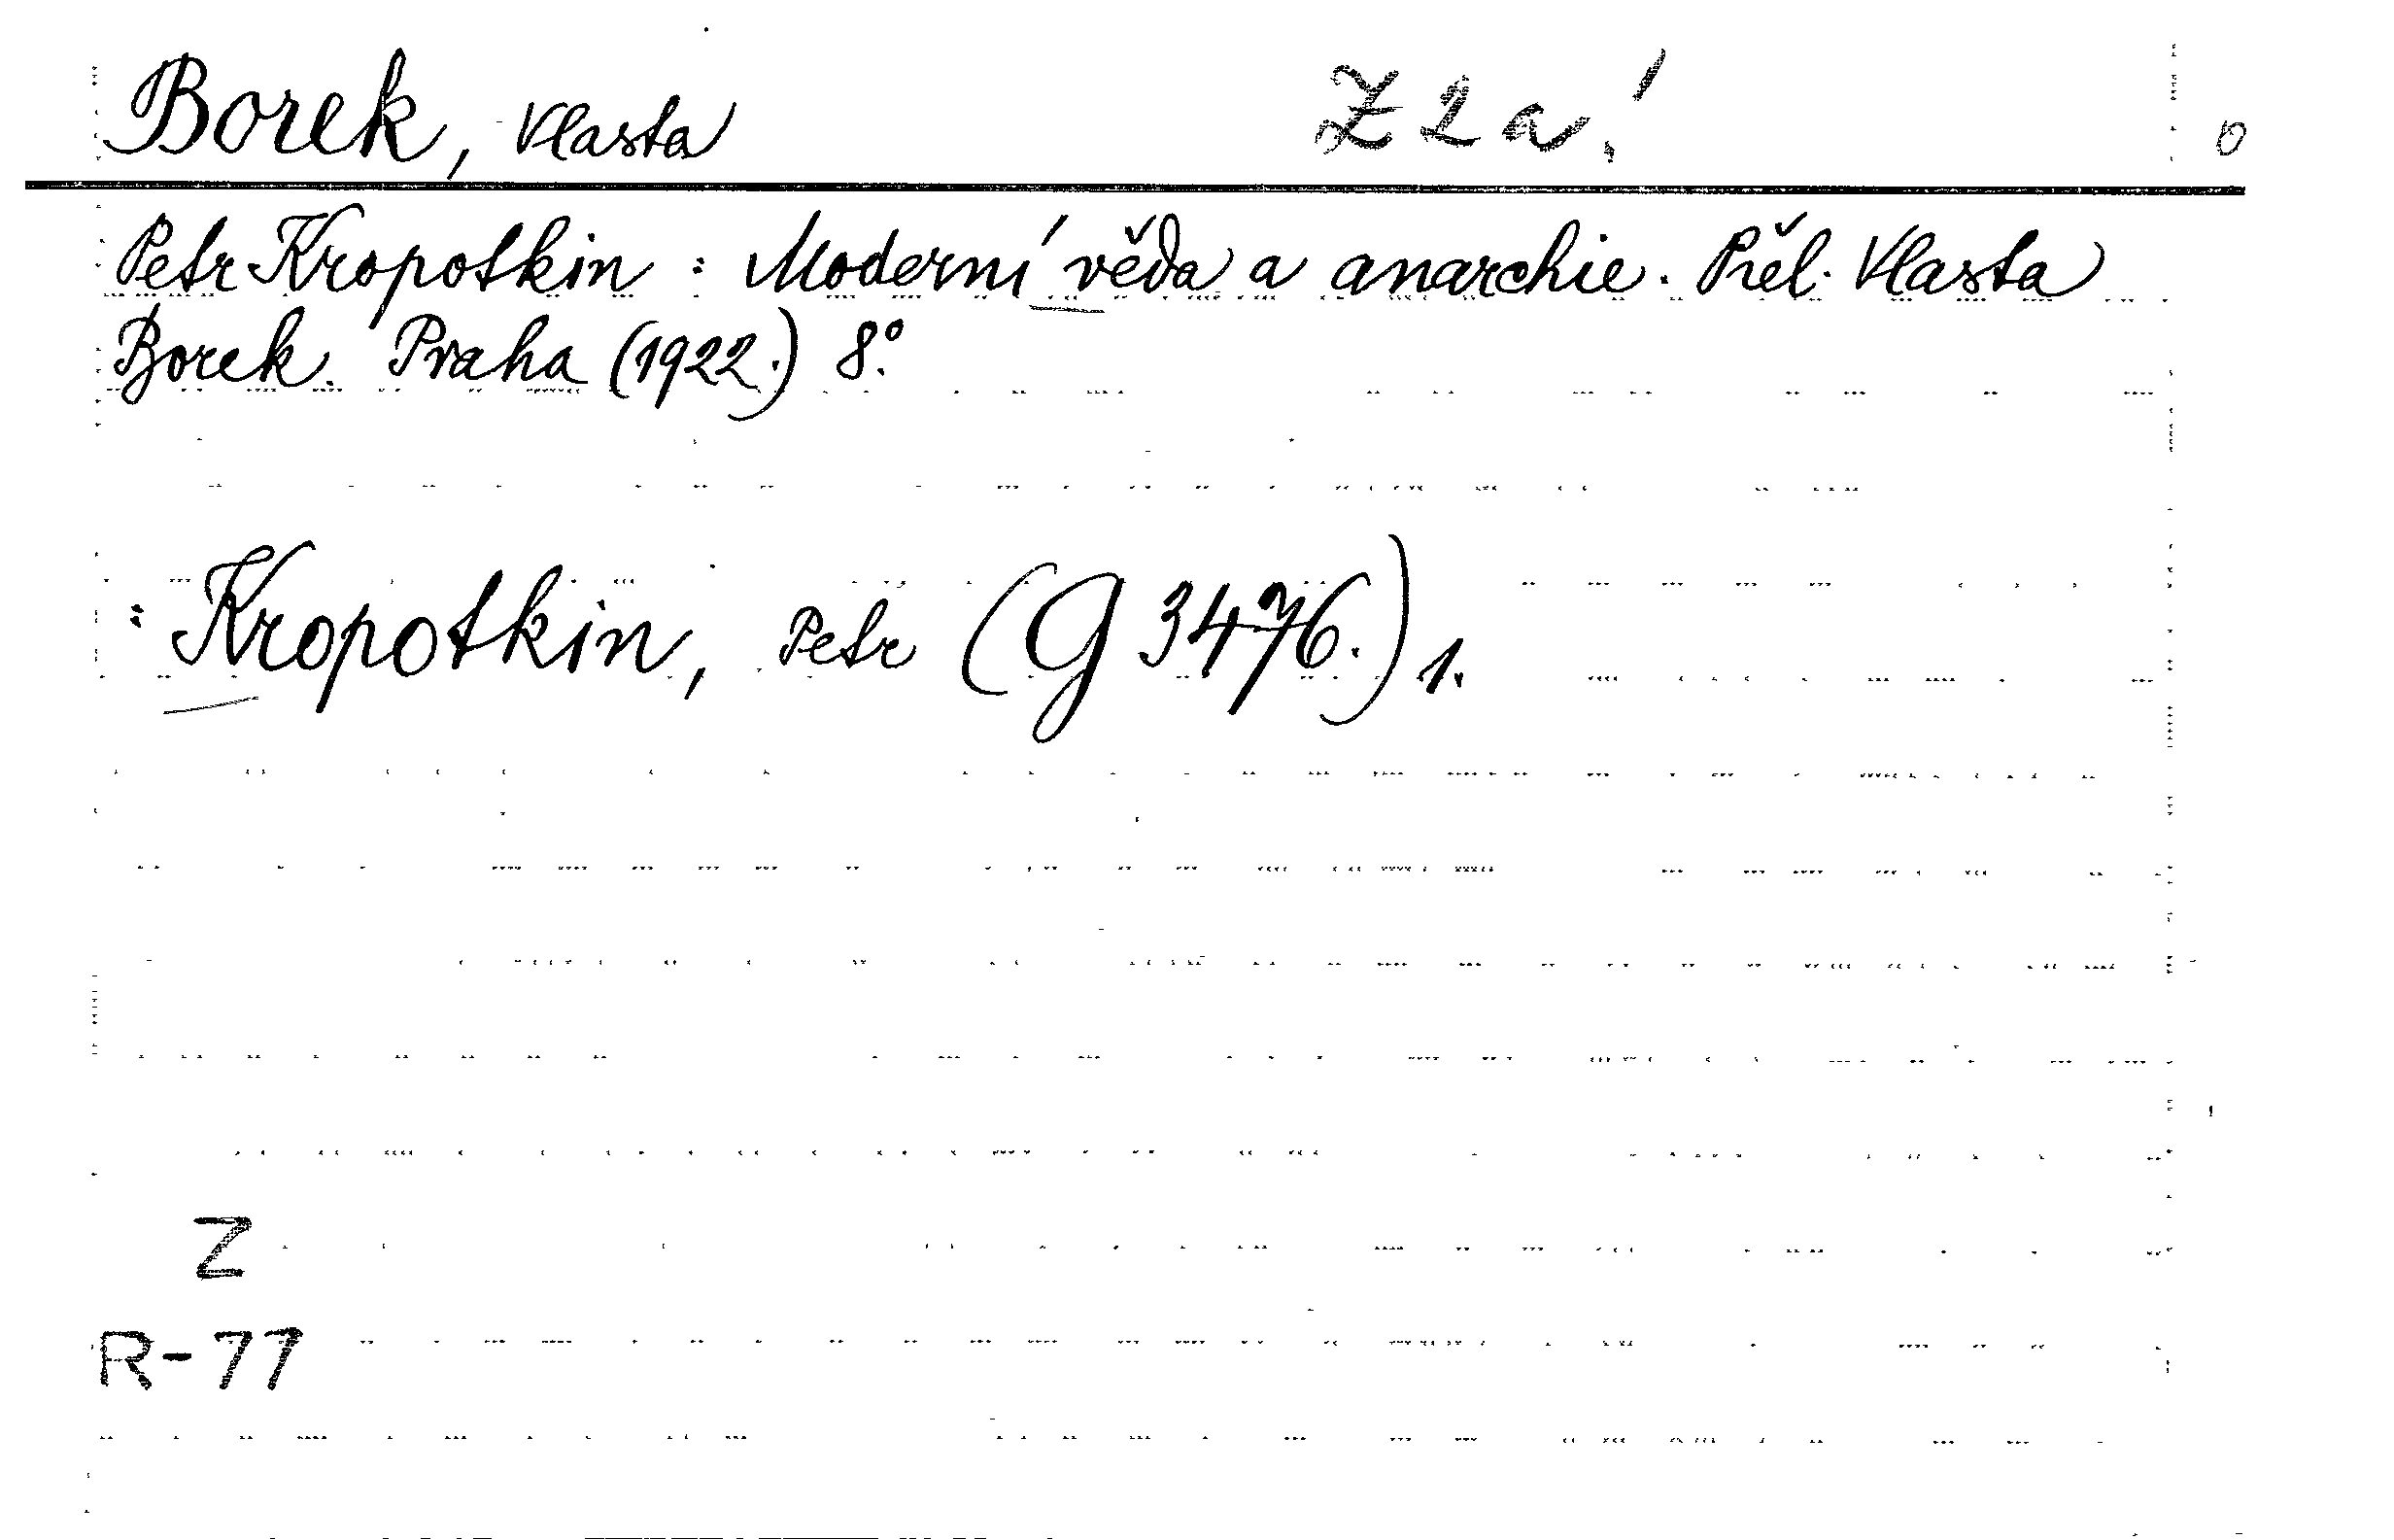 Borek, Vlasta Z 2 a! 0
Petr Kropotkin : Moderní věda a anarchie. Přel. Vlasta
Borek. Praha (1922.) 8°.
: Kropotkin, Petr (G 3476.) 1.
Z
R-77